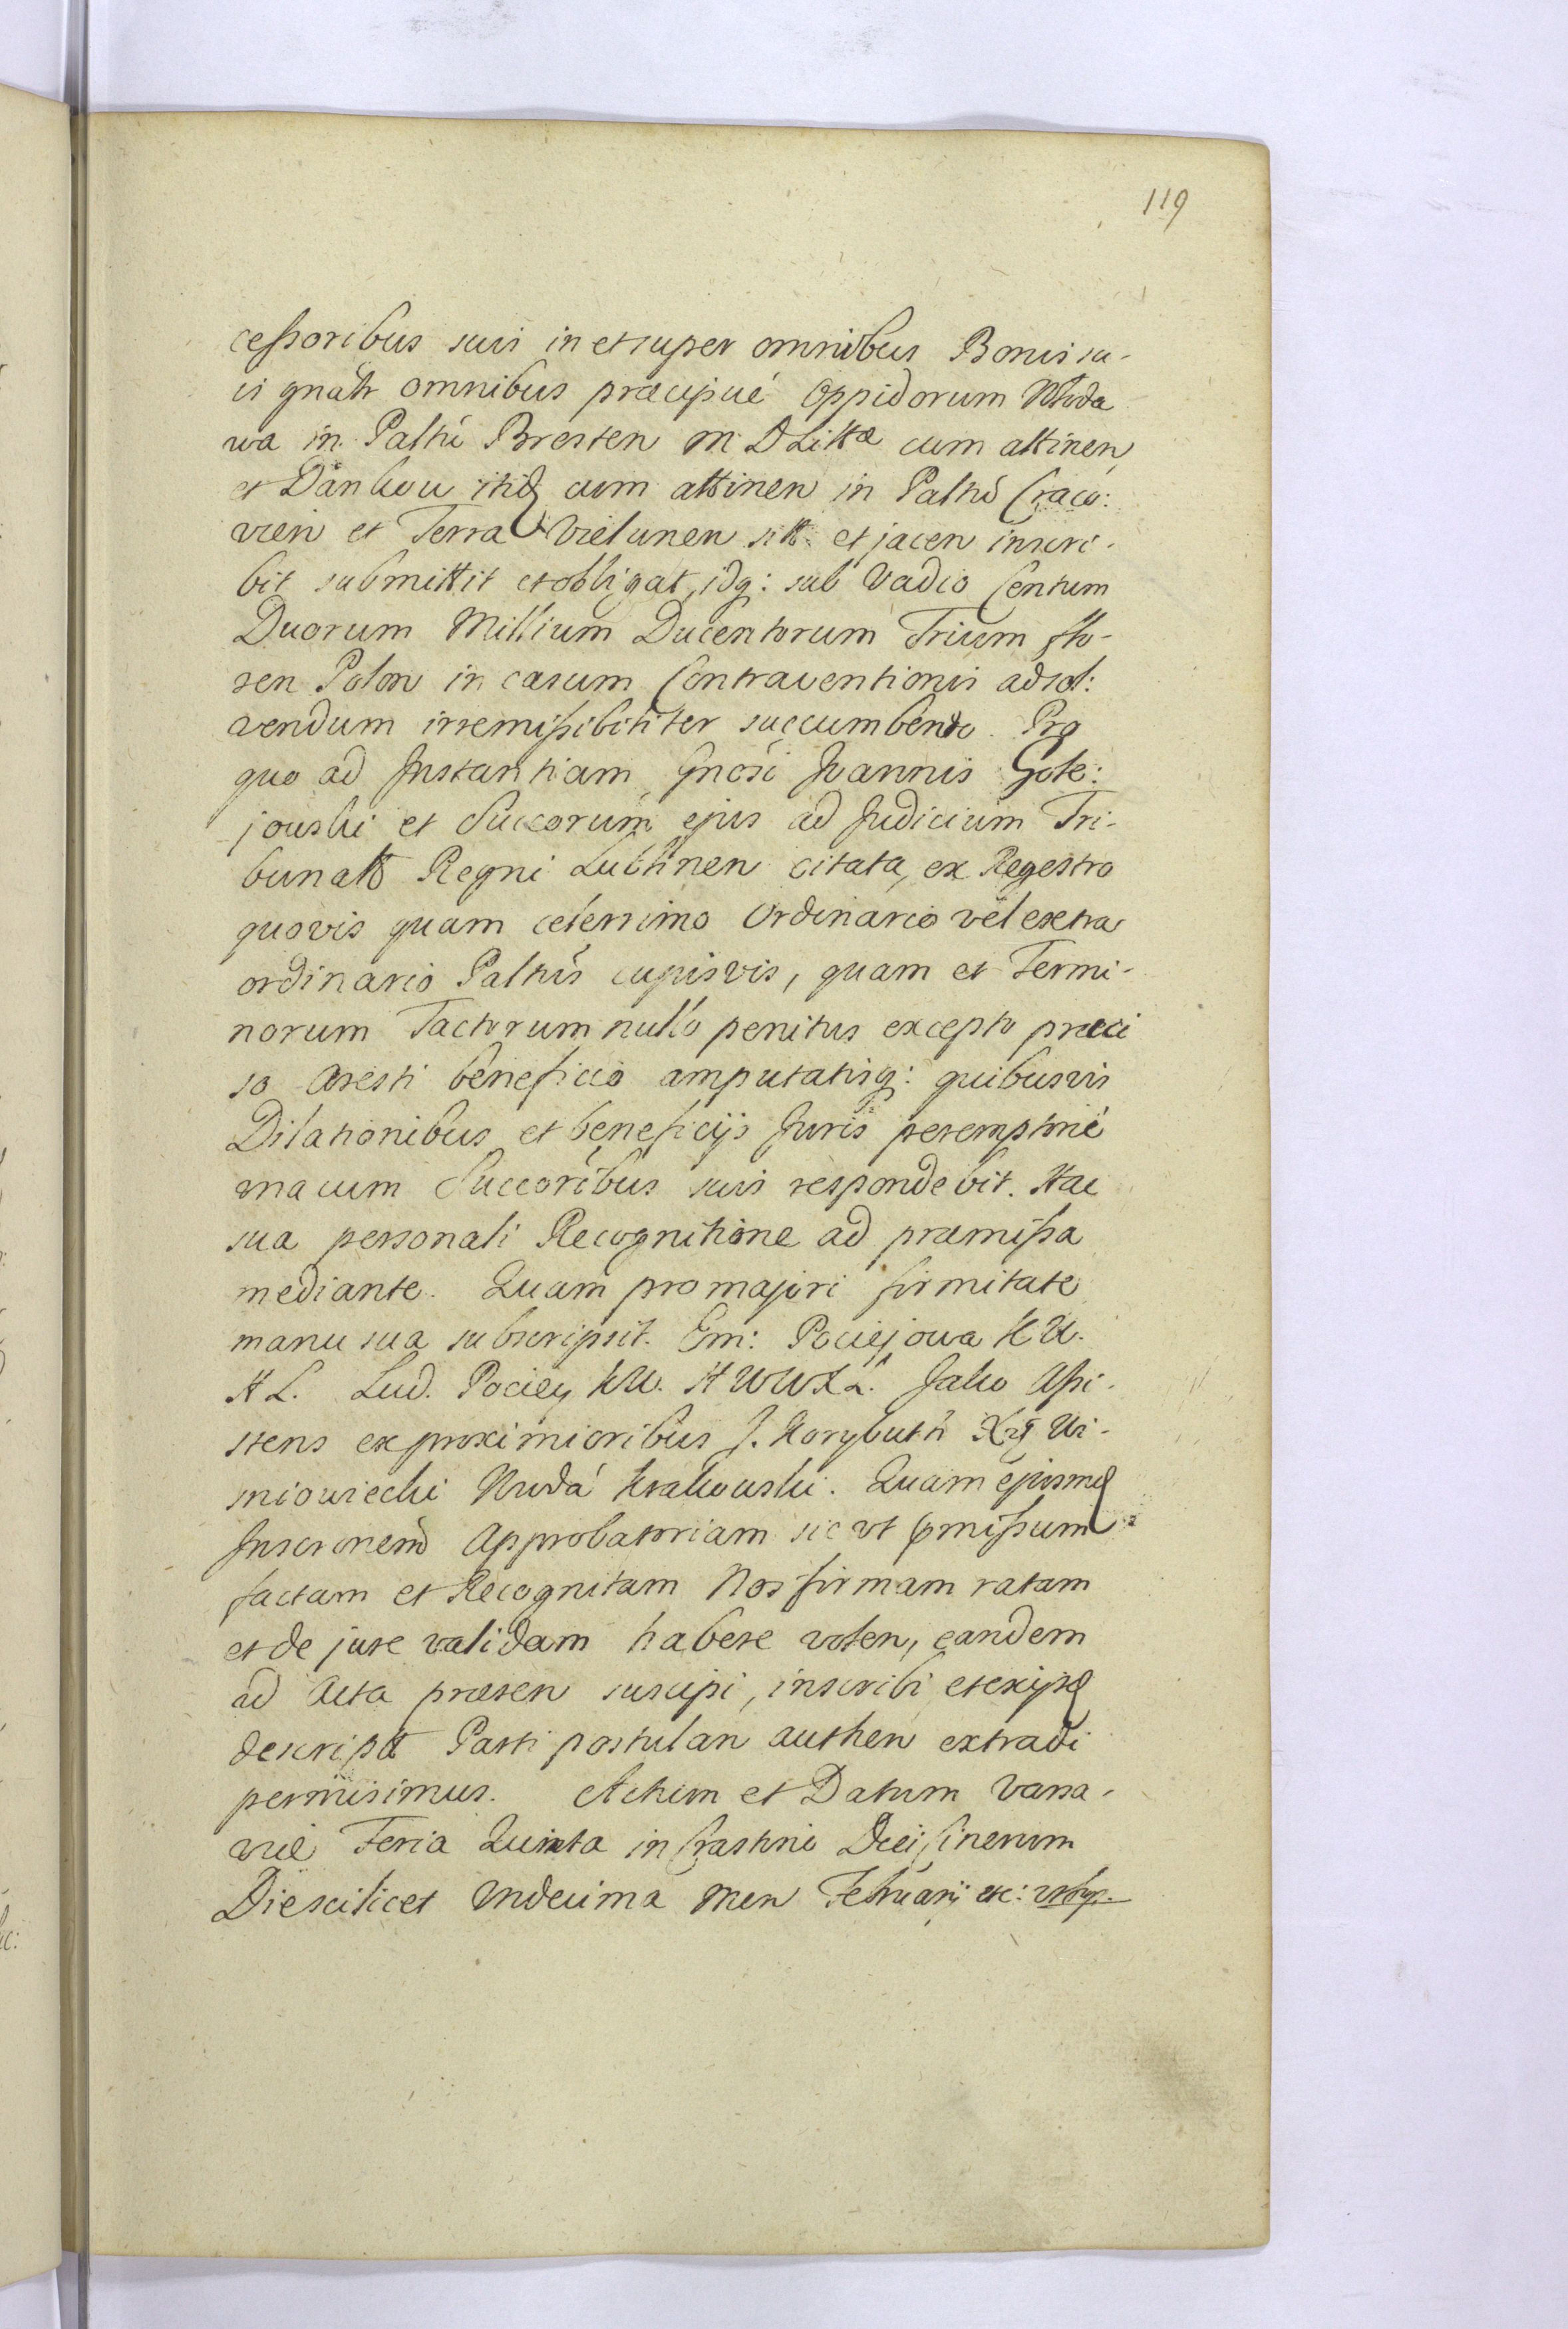 119
cessoribus suis in et super omnibus Bonis su-
is gnãlr omnibus præcipué Oppidorum Włoda
wa in Palttũ Bresten M D Littæ cum attinen
et Dankow itid cum attinen in Palttũ Craco:
vien et Terra Vielunen sitt. et jacen inscri-
bit submittit et obligat, idq: sub Vadio Centum
Duorum Millium Ducentorum Trium flo-
ren Polon in casum Contraventionis adsol:
vendum irremissibiliter succumbendo. Pro
quo ad Instantiam Gnosi Joannis Gole:
jouski et Succorum ejus ad Judicium Tri-
bunalt Regni Lublinen citata, ex Regestro
quovis quam celerrimo Ordinario vel extra
ordinario Palttũs cujusvis, quam et Termi-
norum Tactorum nullo penitus excepto præci
so Aresti beneficio amputatisq: quibusvis
Dilationibus et beneficijs Juris peremptorié
una cum Succoribus suis respondebit. Hac
sua personali Recognitione ad præmissa
mediante. Quam pro majori firmitate
manu sua subscripsit. Em: Pociejowa K W.
H L. Lud. Pociey KW. H W W X L. Jako Assi-
stens ex proximioribus J. Korybuth Xżę Wi-
śniowiecki Wwda Krakouski. Quam ejusmd
Inscrnem Approbatoriam sic ut pmissum
factam et Recognitam Nos firmam ratam
et de jure validam habere volen, eandem
ad Acta præsen suscipi, inscribi et exijsd
descript Parti postulan authen extradi
permisimus. Actum et Datum Varsa-
viæ Feria Quinta in Crastino Diei Cinerum
Die scilicet Undecima Men Februarij etc: utsup.